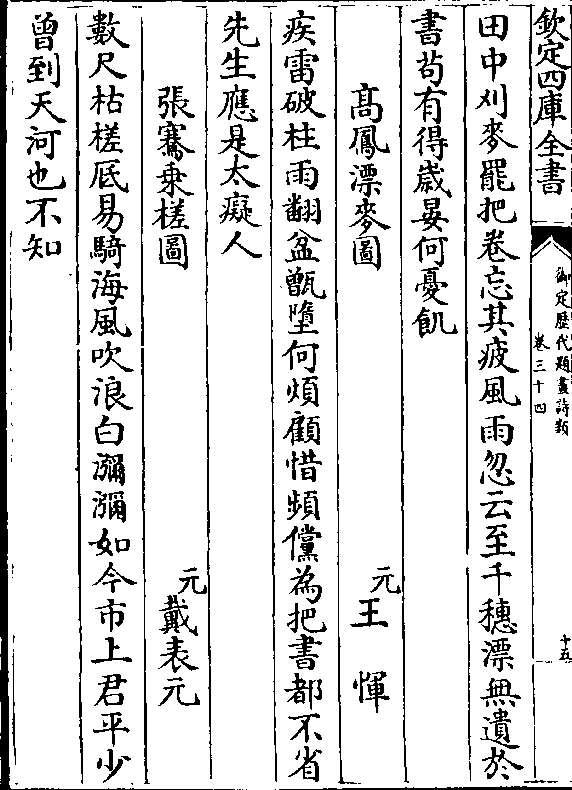 欽定四庫全書
御定歴代題畫詩類
卷三十四
十五
田中刈麥罷把卷忘其疲風雨忽云至千穗漂無遺於
書苟有得歳晏何憂飢
高鳳漂麥圖　元王　惲
疾雷破柱雨翻盆甑墮何煩顧惜頻儻為把書都不省
先生應是太癡人
張騫乗槎圖　元戴表元
數尺枯槎厎易騎海風吹浪白瀰瀰如今市上君平少
曾到天河也不知